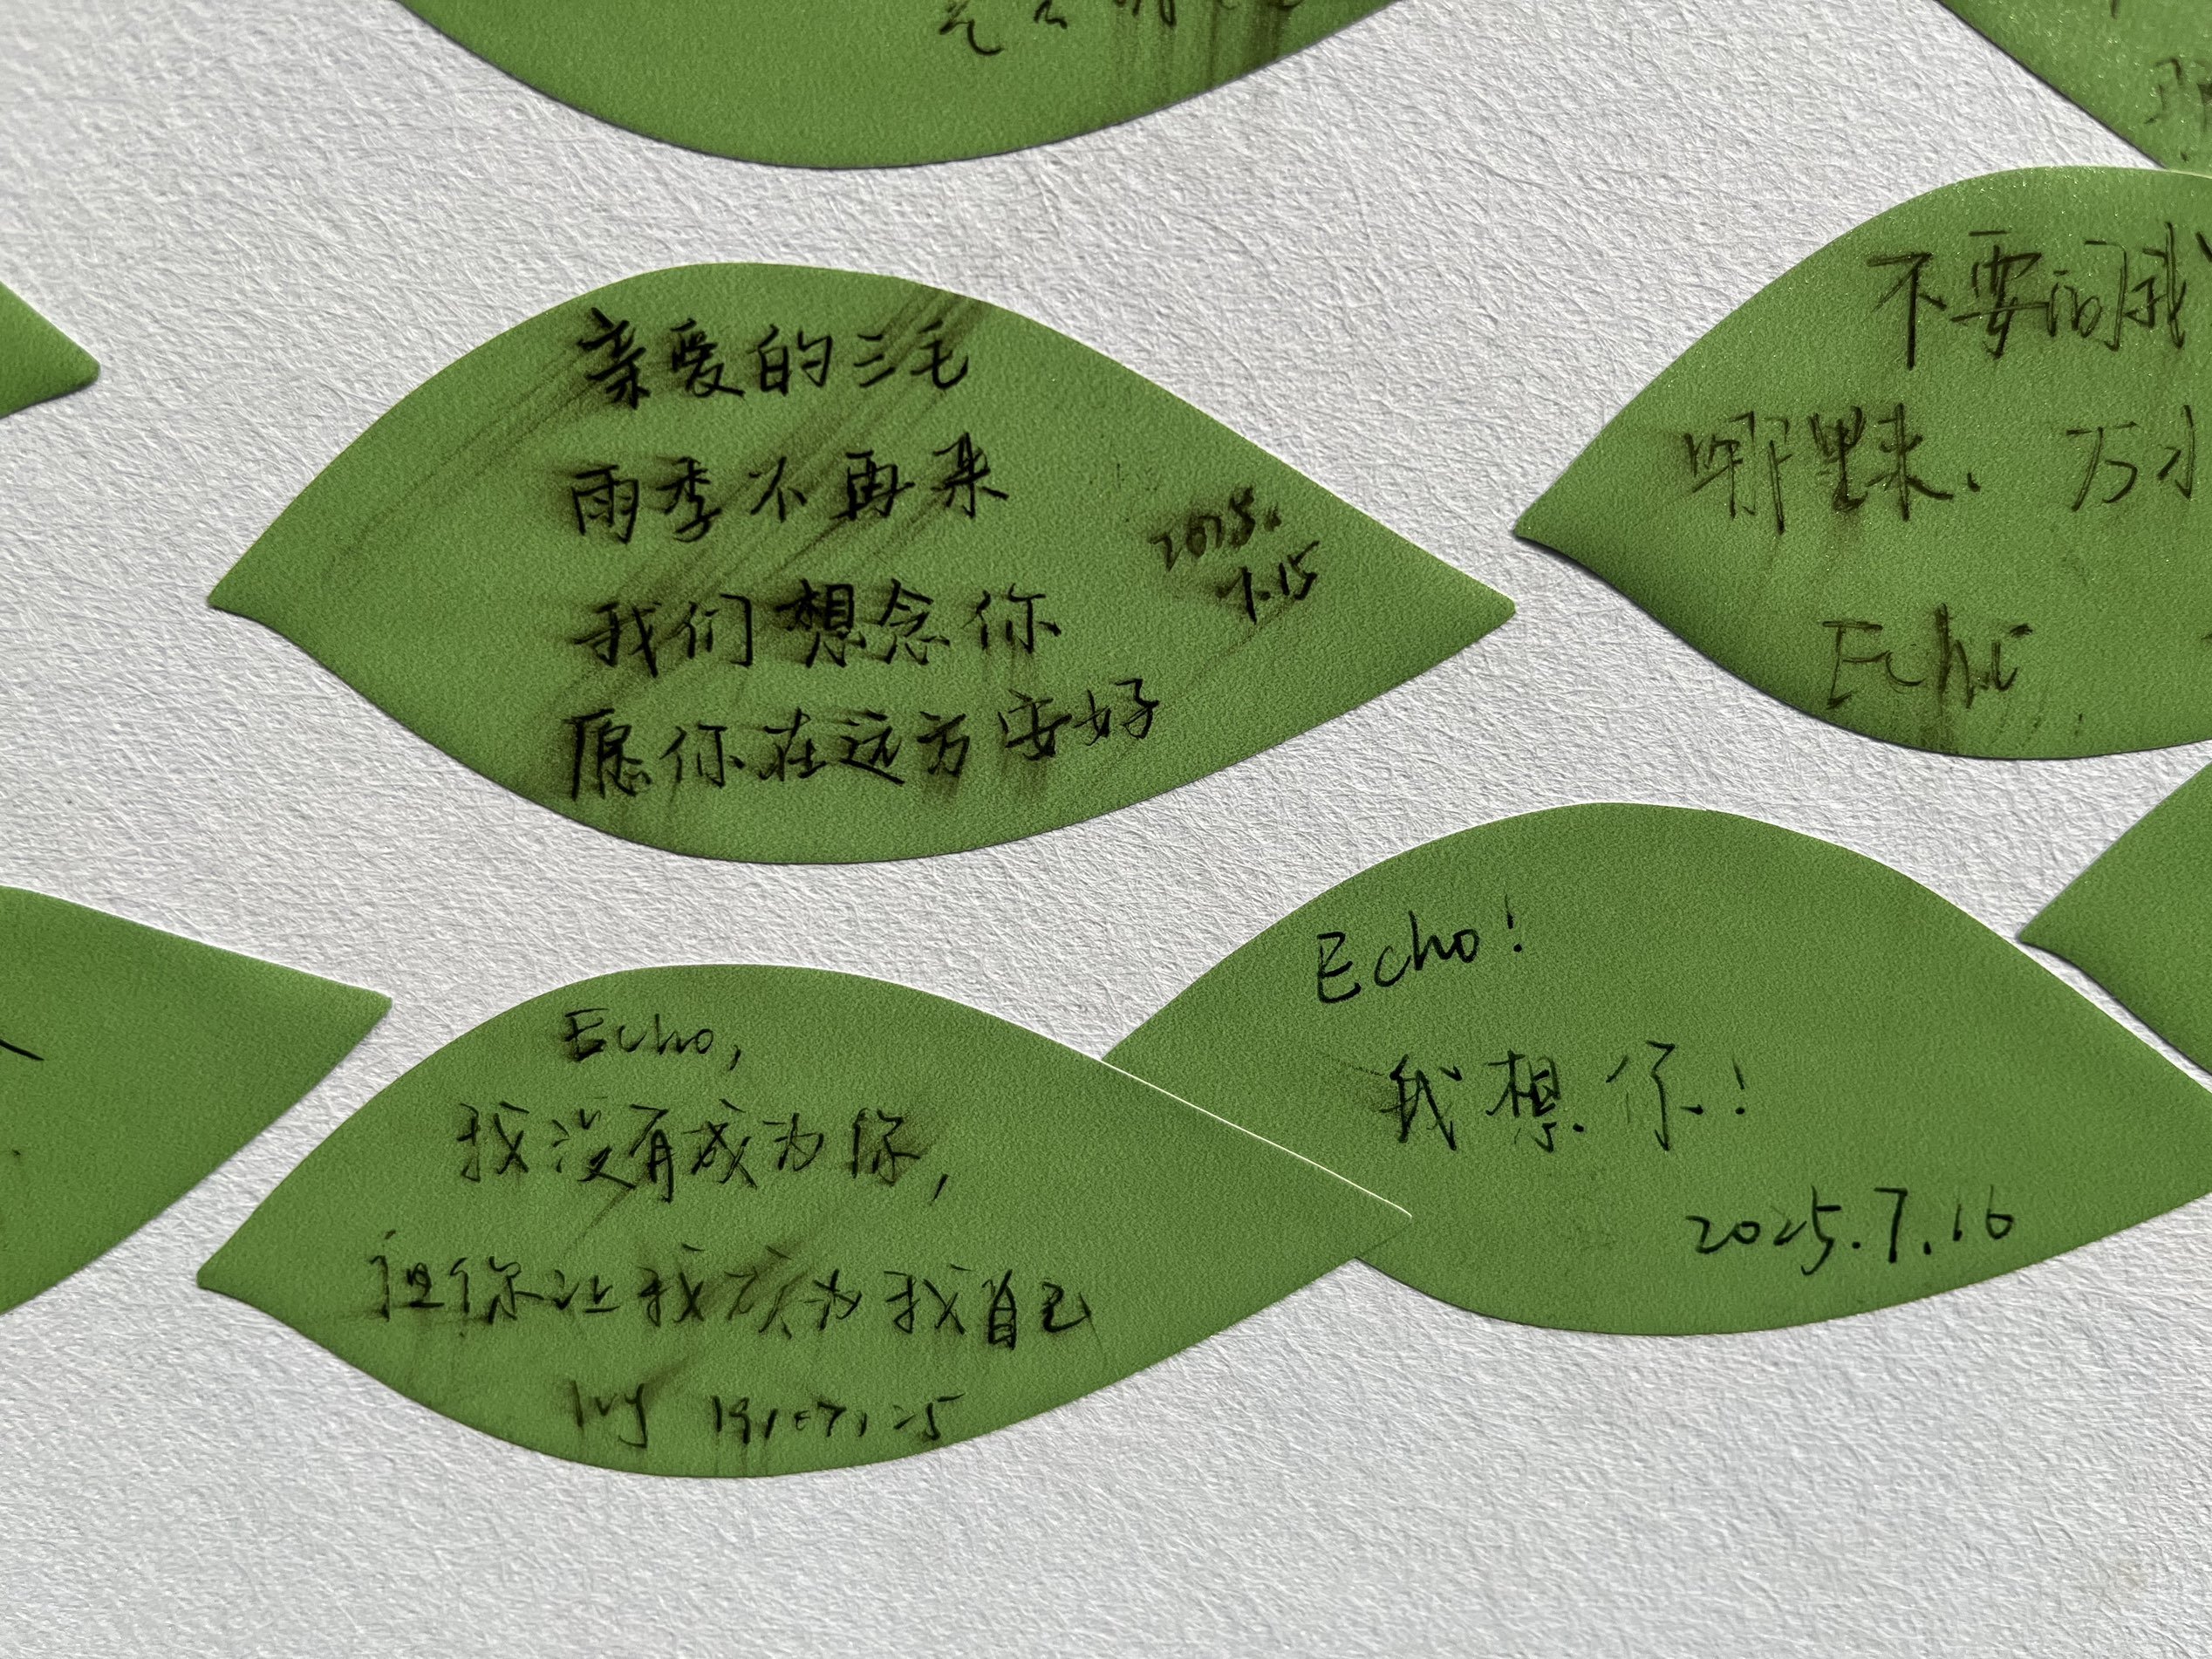 亲爱的三毛
雨季不再来
我们想念你
愿你在远方安好
2025.
7.15
不要问我
哪里来、万水
Echo
Echo!
我想你!
2025.7.16
Echo,
我没有成为你,
但你让我成为我自己
Ivy